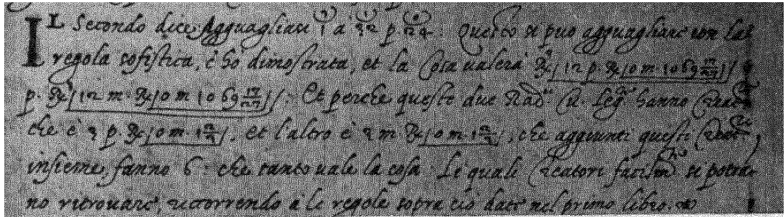 IL Secondo dice Agguagliasi 1 a 32 p. 24: Questo si puo agguagliare con la
regola sofistica, è ho dimostrata, et la Cosa valerà R/12 p. R/0 m. 1069 17/27//
p. R/12 m. R/0 m 1069 17/27//: Et perche queste due Rad. Leg. hanno Creat.
che è 3 p. R/0 m. 1 2/3/, et l'altro è 3 m R/0 m. 1 2/3/, che aggiunti questi Creat.
insieme, fanno 6: che tanto vale la cosa. Le quali Creatori facilm. si potra-
no ritrovare, ricorrendo à le regole sopra ciò date nel primo libro.